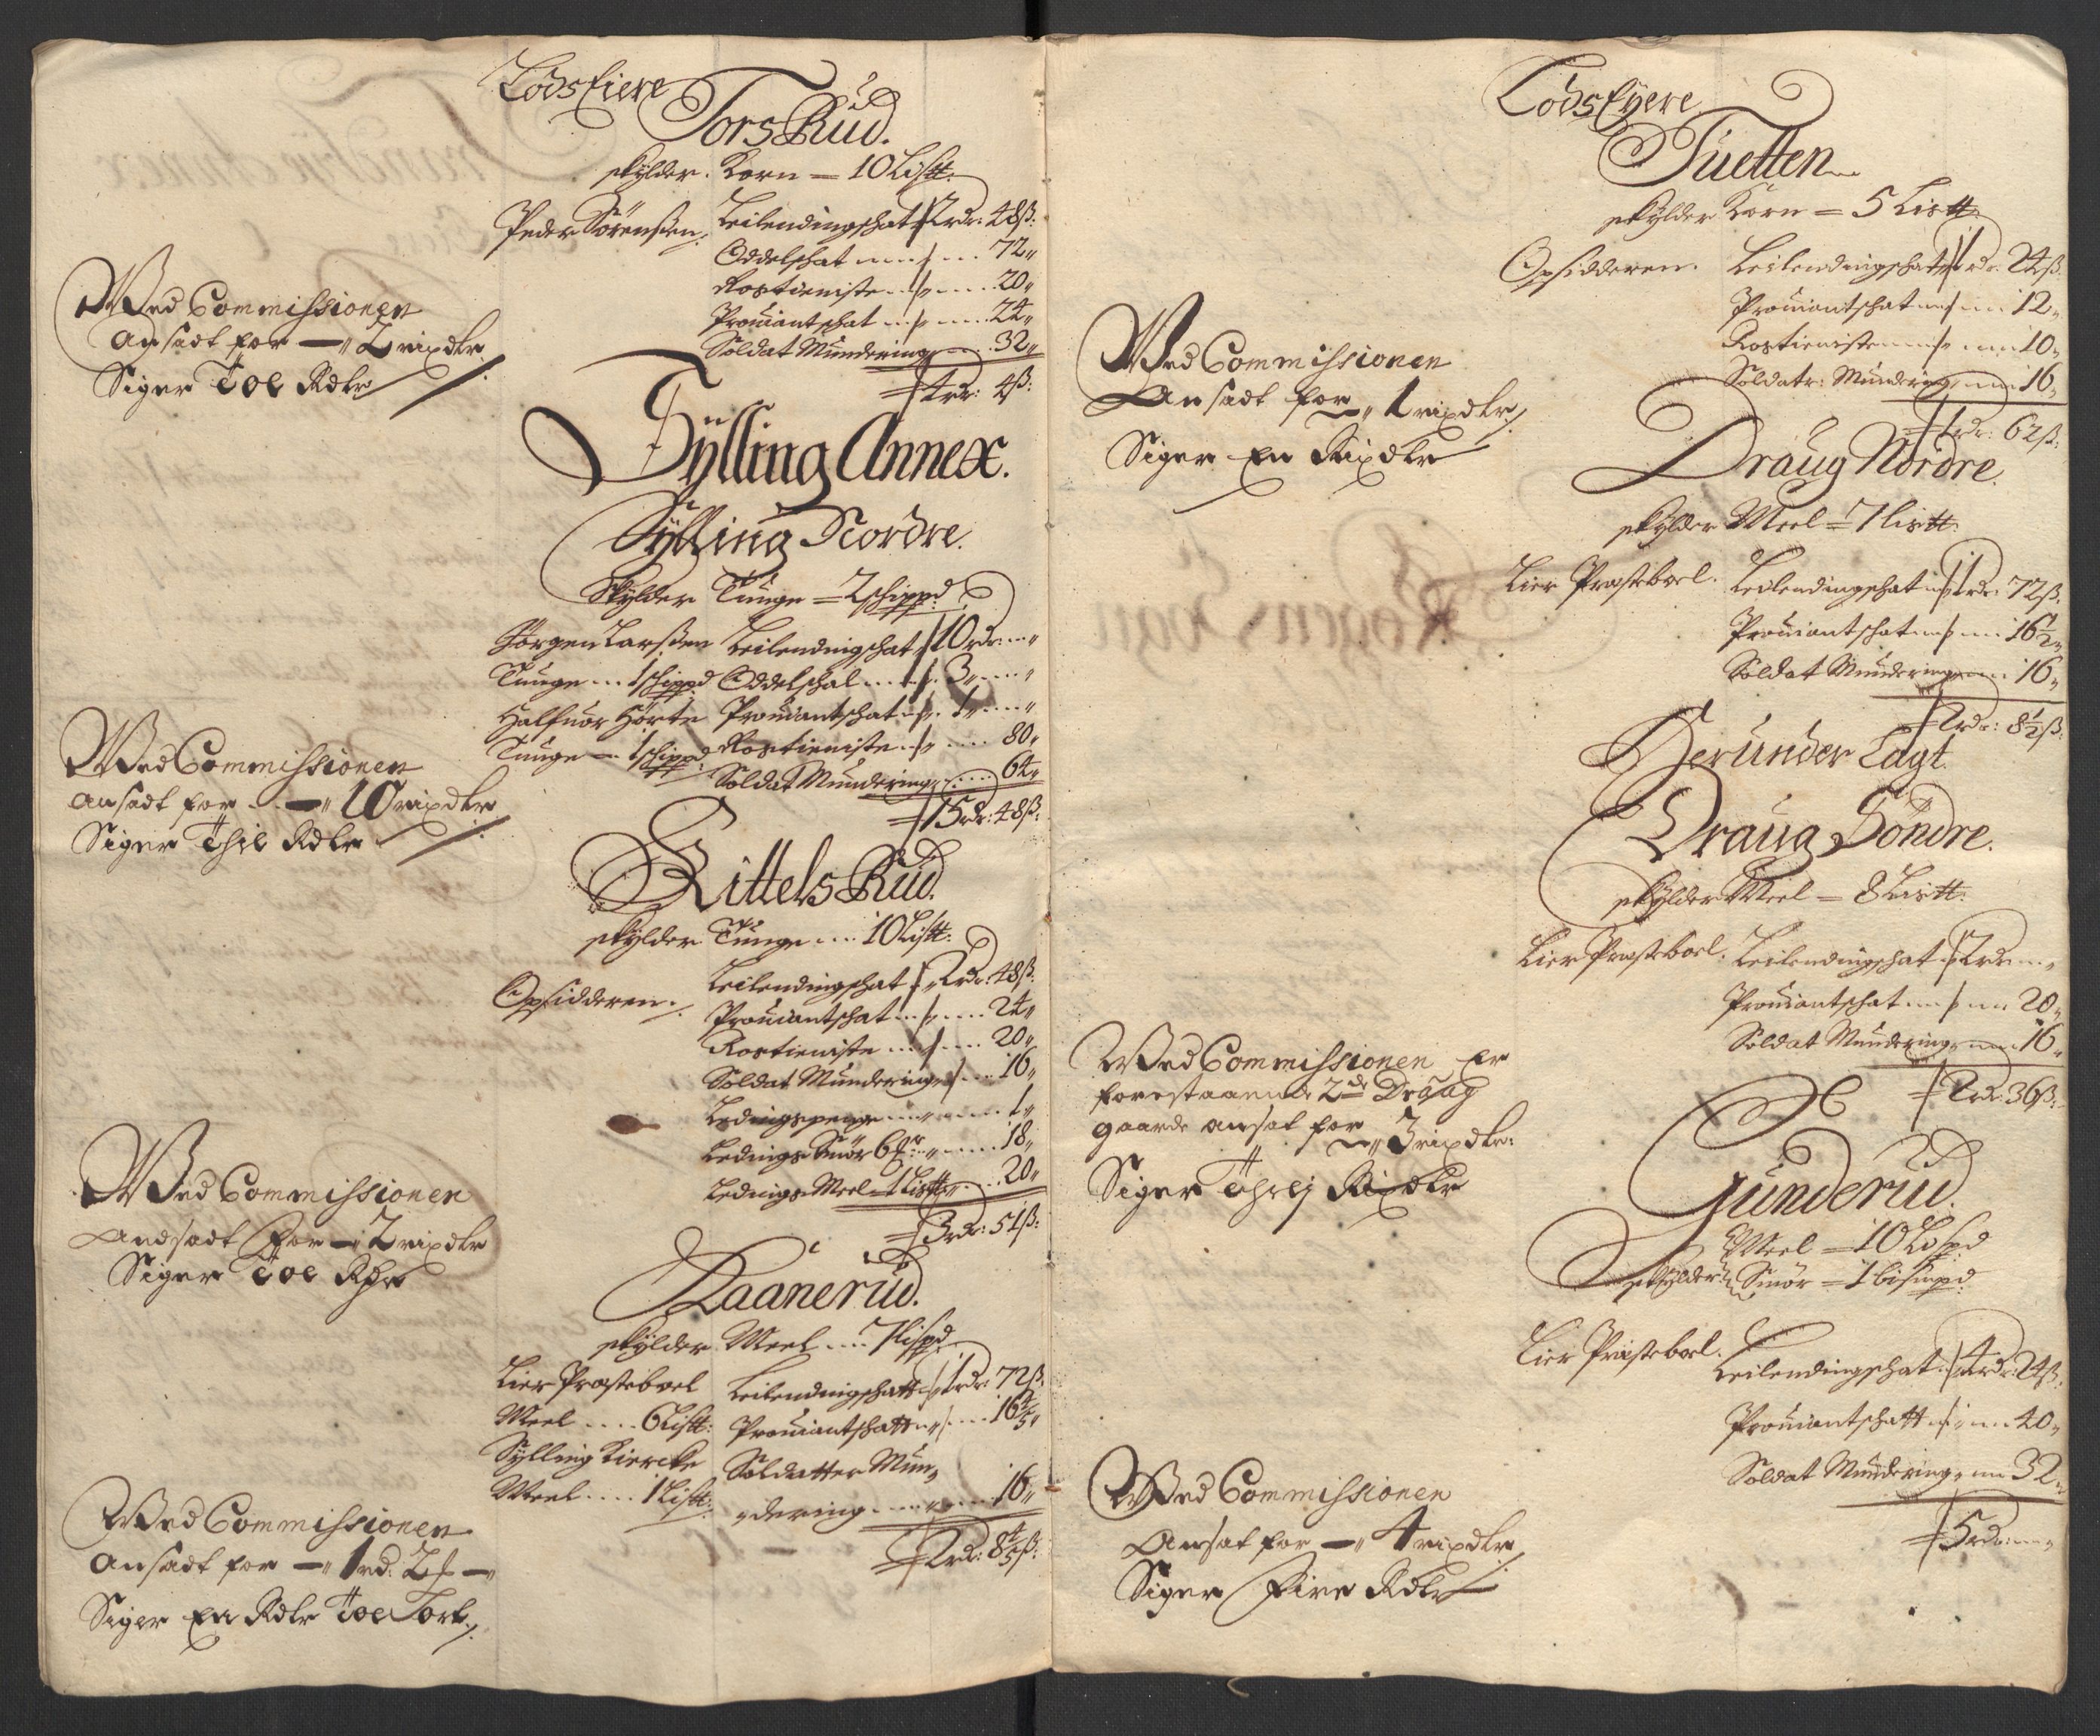 LodsEiere
TorsRud.
skylder. Korn = 10 Lis℔:
Peder Sörenssen / Leilendingschat 2 rdr: 48 ß:
Oddelschat 72 „
Rostieniste 20 „
Prouiantschat 24 „
Soldat Mundering 32 „
4 rdr: 4 ß:
Wed Commissionen
Ansadt for — „ 2 rixdlr
Siger Toe Rdlr
Sÿlling Annex.
Sÿlling Nordre.
Skylder Tunge = 2 schippd
Jörgen Larssen Leilendingschat 10 rdr: „
Tunge 1 schippd Oddelschat 3 „ „
Halfuor Hörte Prouiantschat 1 „ „
Tunge — 1 schippd: Rostieniste 80 „
Soldat Mundering 64 „
15 rdr: 48 ß:
Wed Commissionen
ansadt for — „ 10 rixdlr
Siger Thie Rdlr
KittelsRud.
skylder Tunge 10 Lis℔:
Opsidderen. Leilendingschat 2 rdr: 48 ß:
Prouiantschat 24 „
Rostieniste 20 „
Soldat Mundering 16 „
Ledingspenge 1 „
Ledings Smör 6 18 „
Ledings Meel 1 Lis℔ 20 „
3 rdr: 51 ß:
Wed Commissionen
Andsadt for — 2 rixdlr
Siger Toe Rdr
Raanerud.
skylder Meel 7 lispd
Lier Præsteboel Leilendingschatt 1 rdr: 72 ß:
Meel 6 Lis℔: Prouiantschatt 16 4/5 „
Sylling Kiercke Soldatter Mun„
Meel 1 Lis℔: „dering 16 „
2 rdr: 8 4/5 ß:
Wed Commissionen
Ansadt for — „ 1 rd: 2 —
Siger En Rdlr Toe Ort
LodsEyere
Tuetten
skylder Korn = 5 Lis℔
Opsidderen. Leilendingschat 1 rdr: 24 ß:
Prouiantschat 12 „
Rostieniste 10 „
Soldatr: Mundering 16 „
1 rdr: 62 ß:
Wed Commissionen
Ansadt for — „ 1 rixdlr /
Siger En Rixdlr
Draug Nordre.
skylder Meel = 7 lis℔:
Lier Præsteboel. Leilendingschat 1 rdr: 72 ß:
Prouiantschat 16 1/2 „
Soldat Mundering 16 „
2 rdr: 8 1/2 ß:
Herunder Lagt
Draug Söndre.
skylder Meel = 8 Lis℔:
Lier Præsteboel. Leilendingschat 2 rdr „
Prouiantschat 20 „
Soldat Mundering 16 „
2 rdr: 36 ß:
Wed Commissionen Er
forestaaende 2de Draug
gaarde ansat for — „ 3 rixdlr:
Siger Threj Rixdlr
Gunderud.
Meel = 10 Lispd
skylder Smör = 1 bismpd:
Lier Præsteboel. Leilendingschat 4 rdr: 24 ß:
Prouiantschatt 40 „
Soldat Mundering 32 „
5 rdr: „
Wed Commissionen
Ansat for — „ 4 rixdlr /
Siger Fire Rdlr